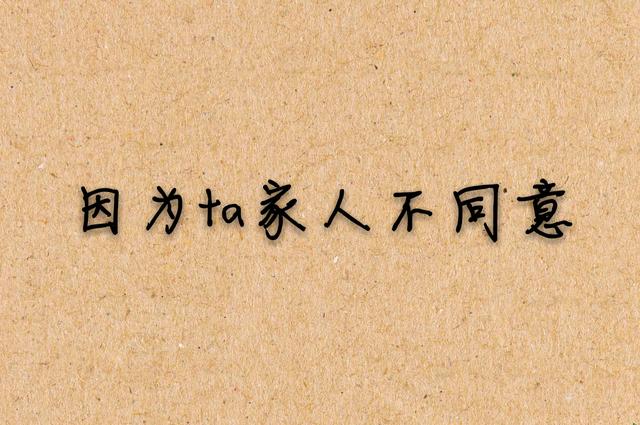 因为ta家人不同意